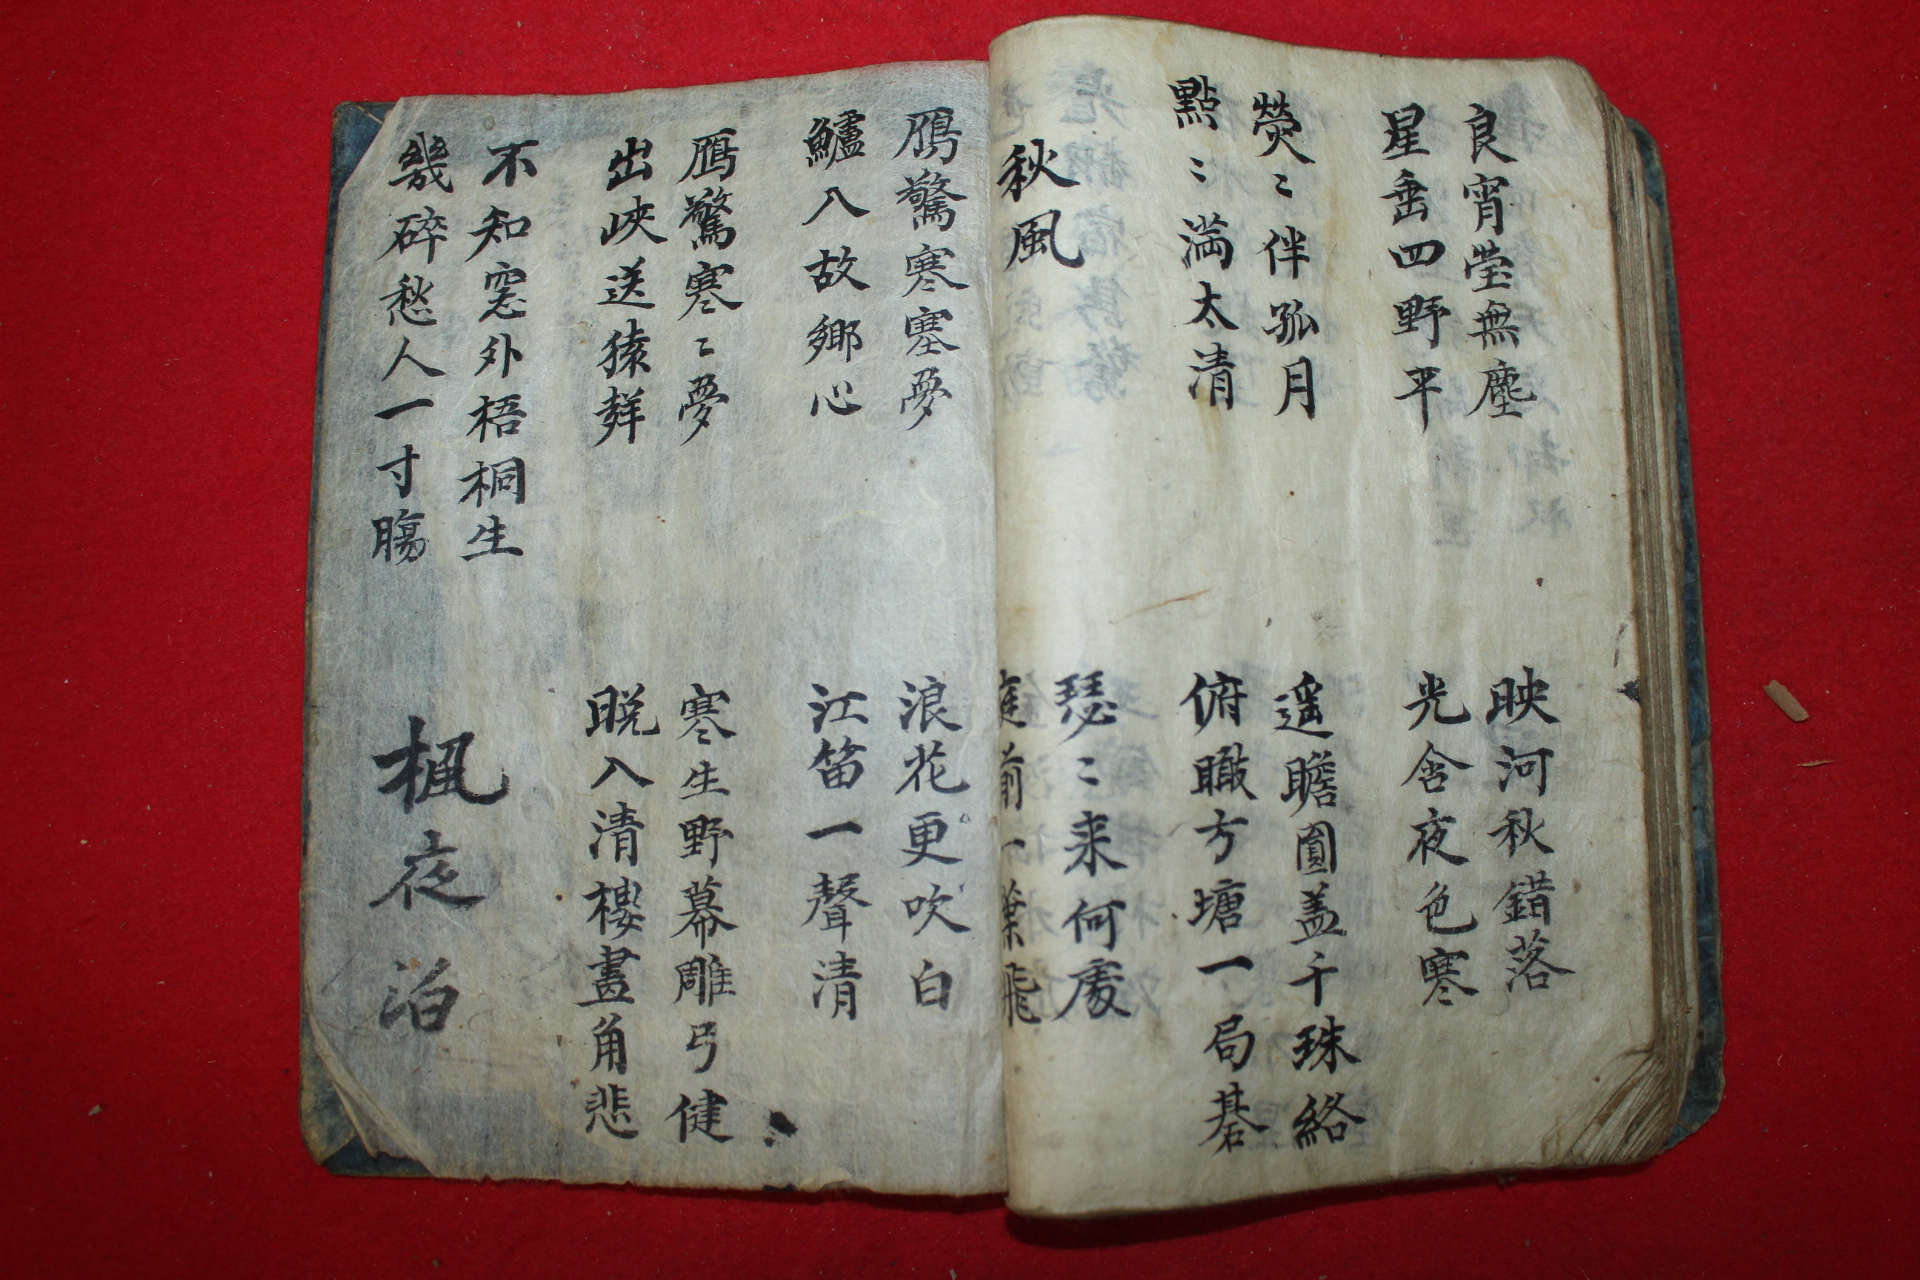 良宵莹無塵
星垂四野平
映河秋錯落
光含夜色寒
熒〻伴孤月
點〻満太清
遥瞻圎盖千珠絡
俯瞰方塘一局碁
秋風
瑟〻来何處
庭前一葉飛
鴈驚寒塞夢
鱸入故鄉心
浪花更吹白
江笛一聲清
鴈驚寒〻夢
出峽送猿
寒生野幕雕弓健
晩入清樓畫角悲
不知窓外梧桐生
幾碎愁人一寸膓
楓夜泊